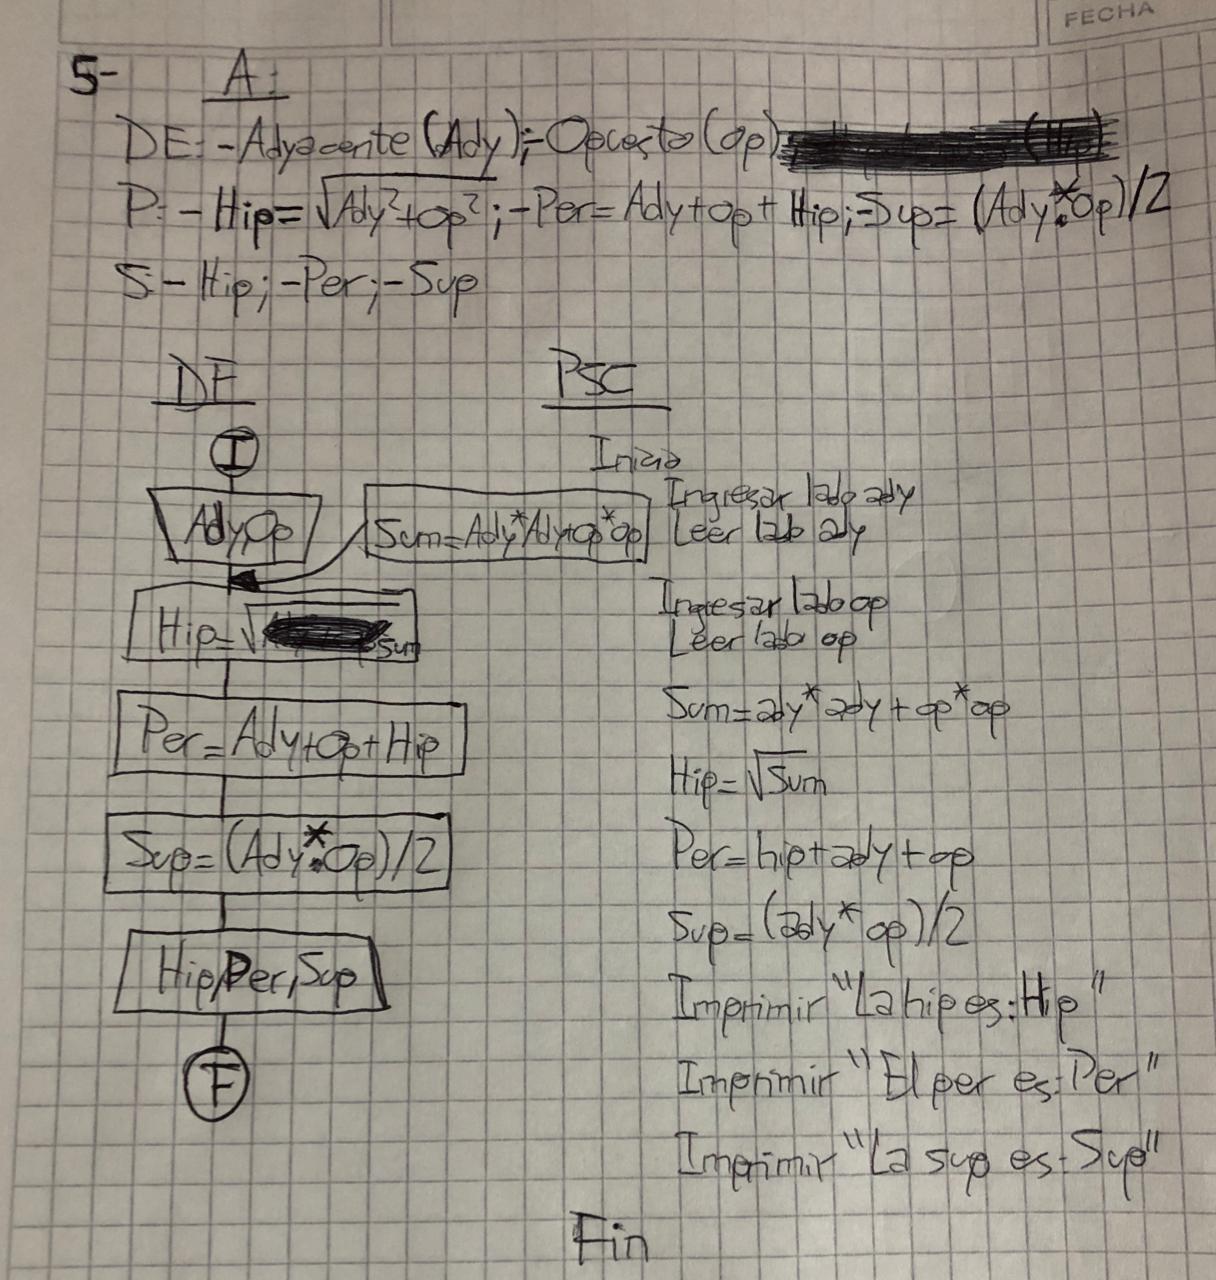 FECHA
5- A:
DE: -Adyacente (Ady); -Opuesto (op)
P: -Hip=√Ady²+op²; -Per=Ady+op+Hip; -Sup=(Ady*Op)/2
S: -Hip; -Per; -Sup
DF
I
Ady,Op
Sum=Ady*Ady+op*op
Hip=√sum
Per=Ady+Op+Hip
Sup=(Ady*Op)/2
Hip,Per,Sup
F
PSC
Inicio
Ingresar lado ady
Leer lado ady
Ingresar lado op
Leer lado op
Sum=ady*ady+op*op
Hip=√Sum
Per=hip+ady+op
Sup=(ady*op)/2
Imprimir "La hip es: Hip"
Imprimir "El per es: Per"
Imprimir "La sup es: Sup"
Fin